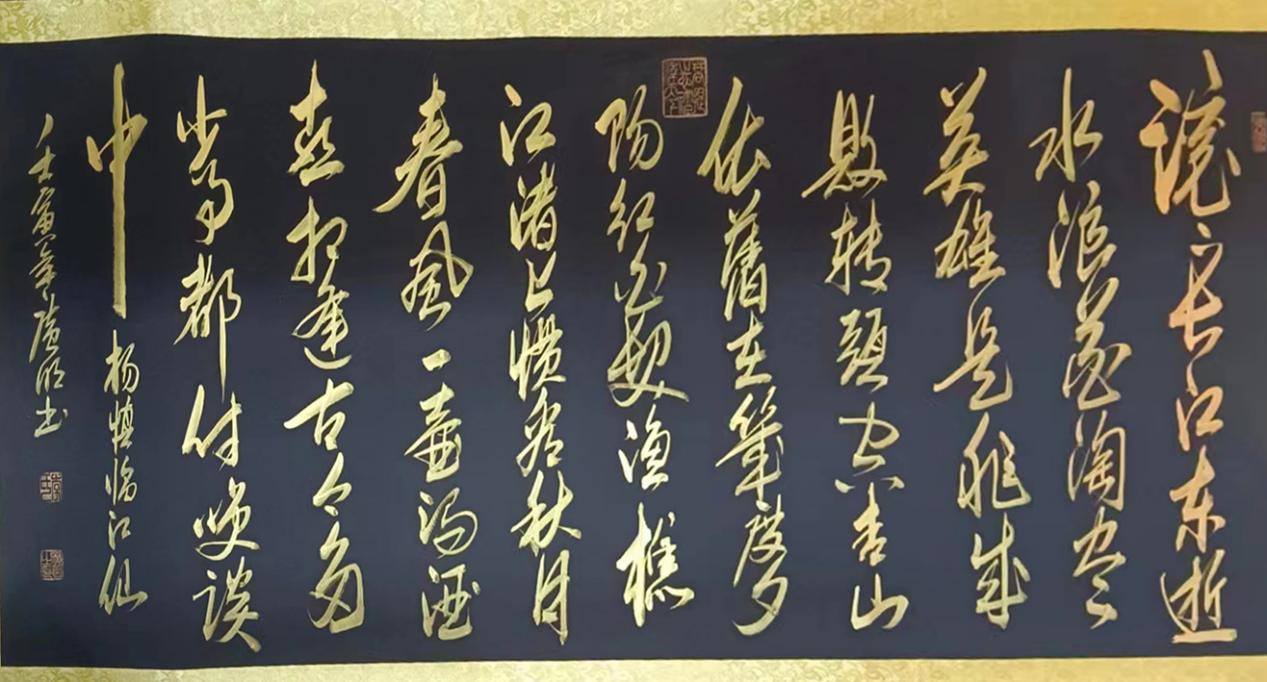 滚滚长江东逝
水浪花淘尽
英雄是非成
败转頭空青山
依舊在幾度夕
阳红白发渔樵
江渚上惯看秋月
春風一壶浊酒
喜相逢古今多
少事都付笑谈
中 杨慎临江仙
壬寅年广明书